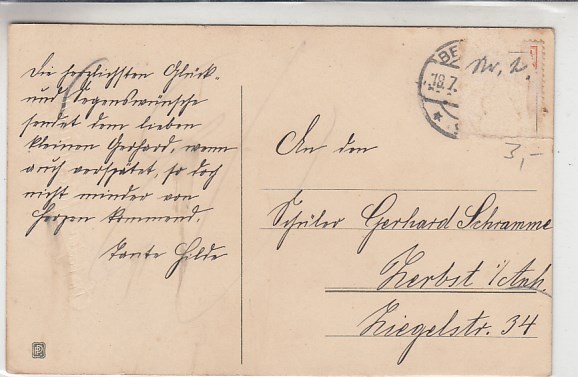 Die herzlichsten Glück-
und Segenswünsche
sendet dem lieben
kleinen Gerhard, wenn
auch verspätet, so doch
nicht minder von
Herzen kommend.
Tante Hilde
BE
18.7.
Nr. 2.
3,-
An den
Schüler Gerhard Schramme
Zerbst i/Anh.
Ziegelstr. 34